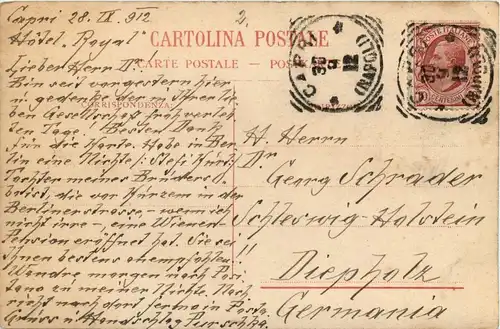 Capri 28. IX. 912
2.
Hôtel "Royal"
CARTOLINA POSTALE
(CARTE POSTALE - POS
CORRISPONDENZA
CAPRI
30
9
12
(NAPOLI)
POSTE ITALIANE
Lieber Herr Dr.
Bin seit vorgestern hier
u gedenke der in Ihrer lie-
ben Gesellschaft froh verleb-
ten Tage. Besten Dank
für die Karte. Habe in Ber-
lin eine Nichte: Stefi
Tochter meines Bruders
die vor Kürzem in der
Berlinerstrasse - wenn ich
nicht irre - eine Wiener-
Pension eröffnet hat. Sie sei
Ihnen bestens empfohlen!!
Wandre morgen nach Posi-
tano zu meiner Nichte. Nach-
richt nach dort ferma in Posta
Gruss u Handschlag
H. Herrn
Dr.
Georg Schrader
Schleswig-Holstein
Diepholz
Germania